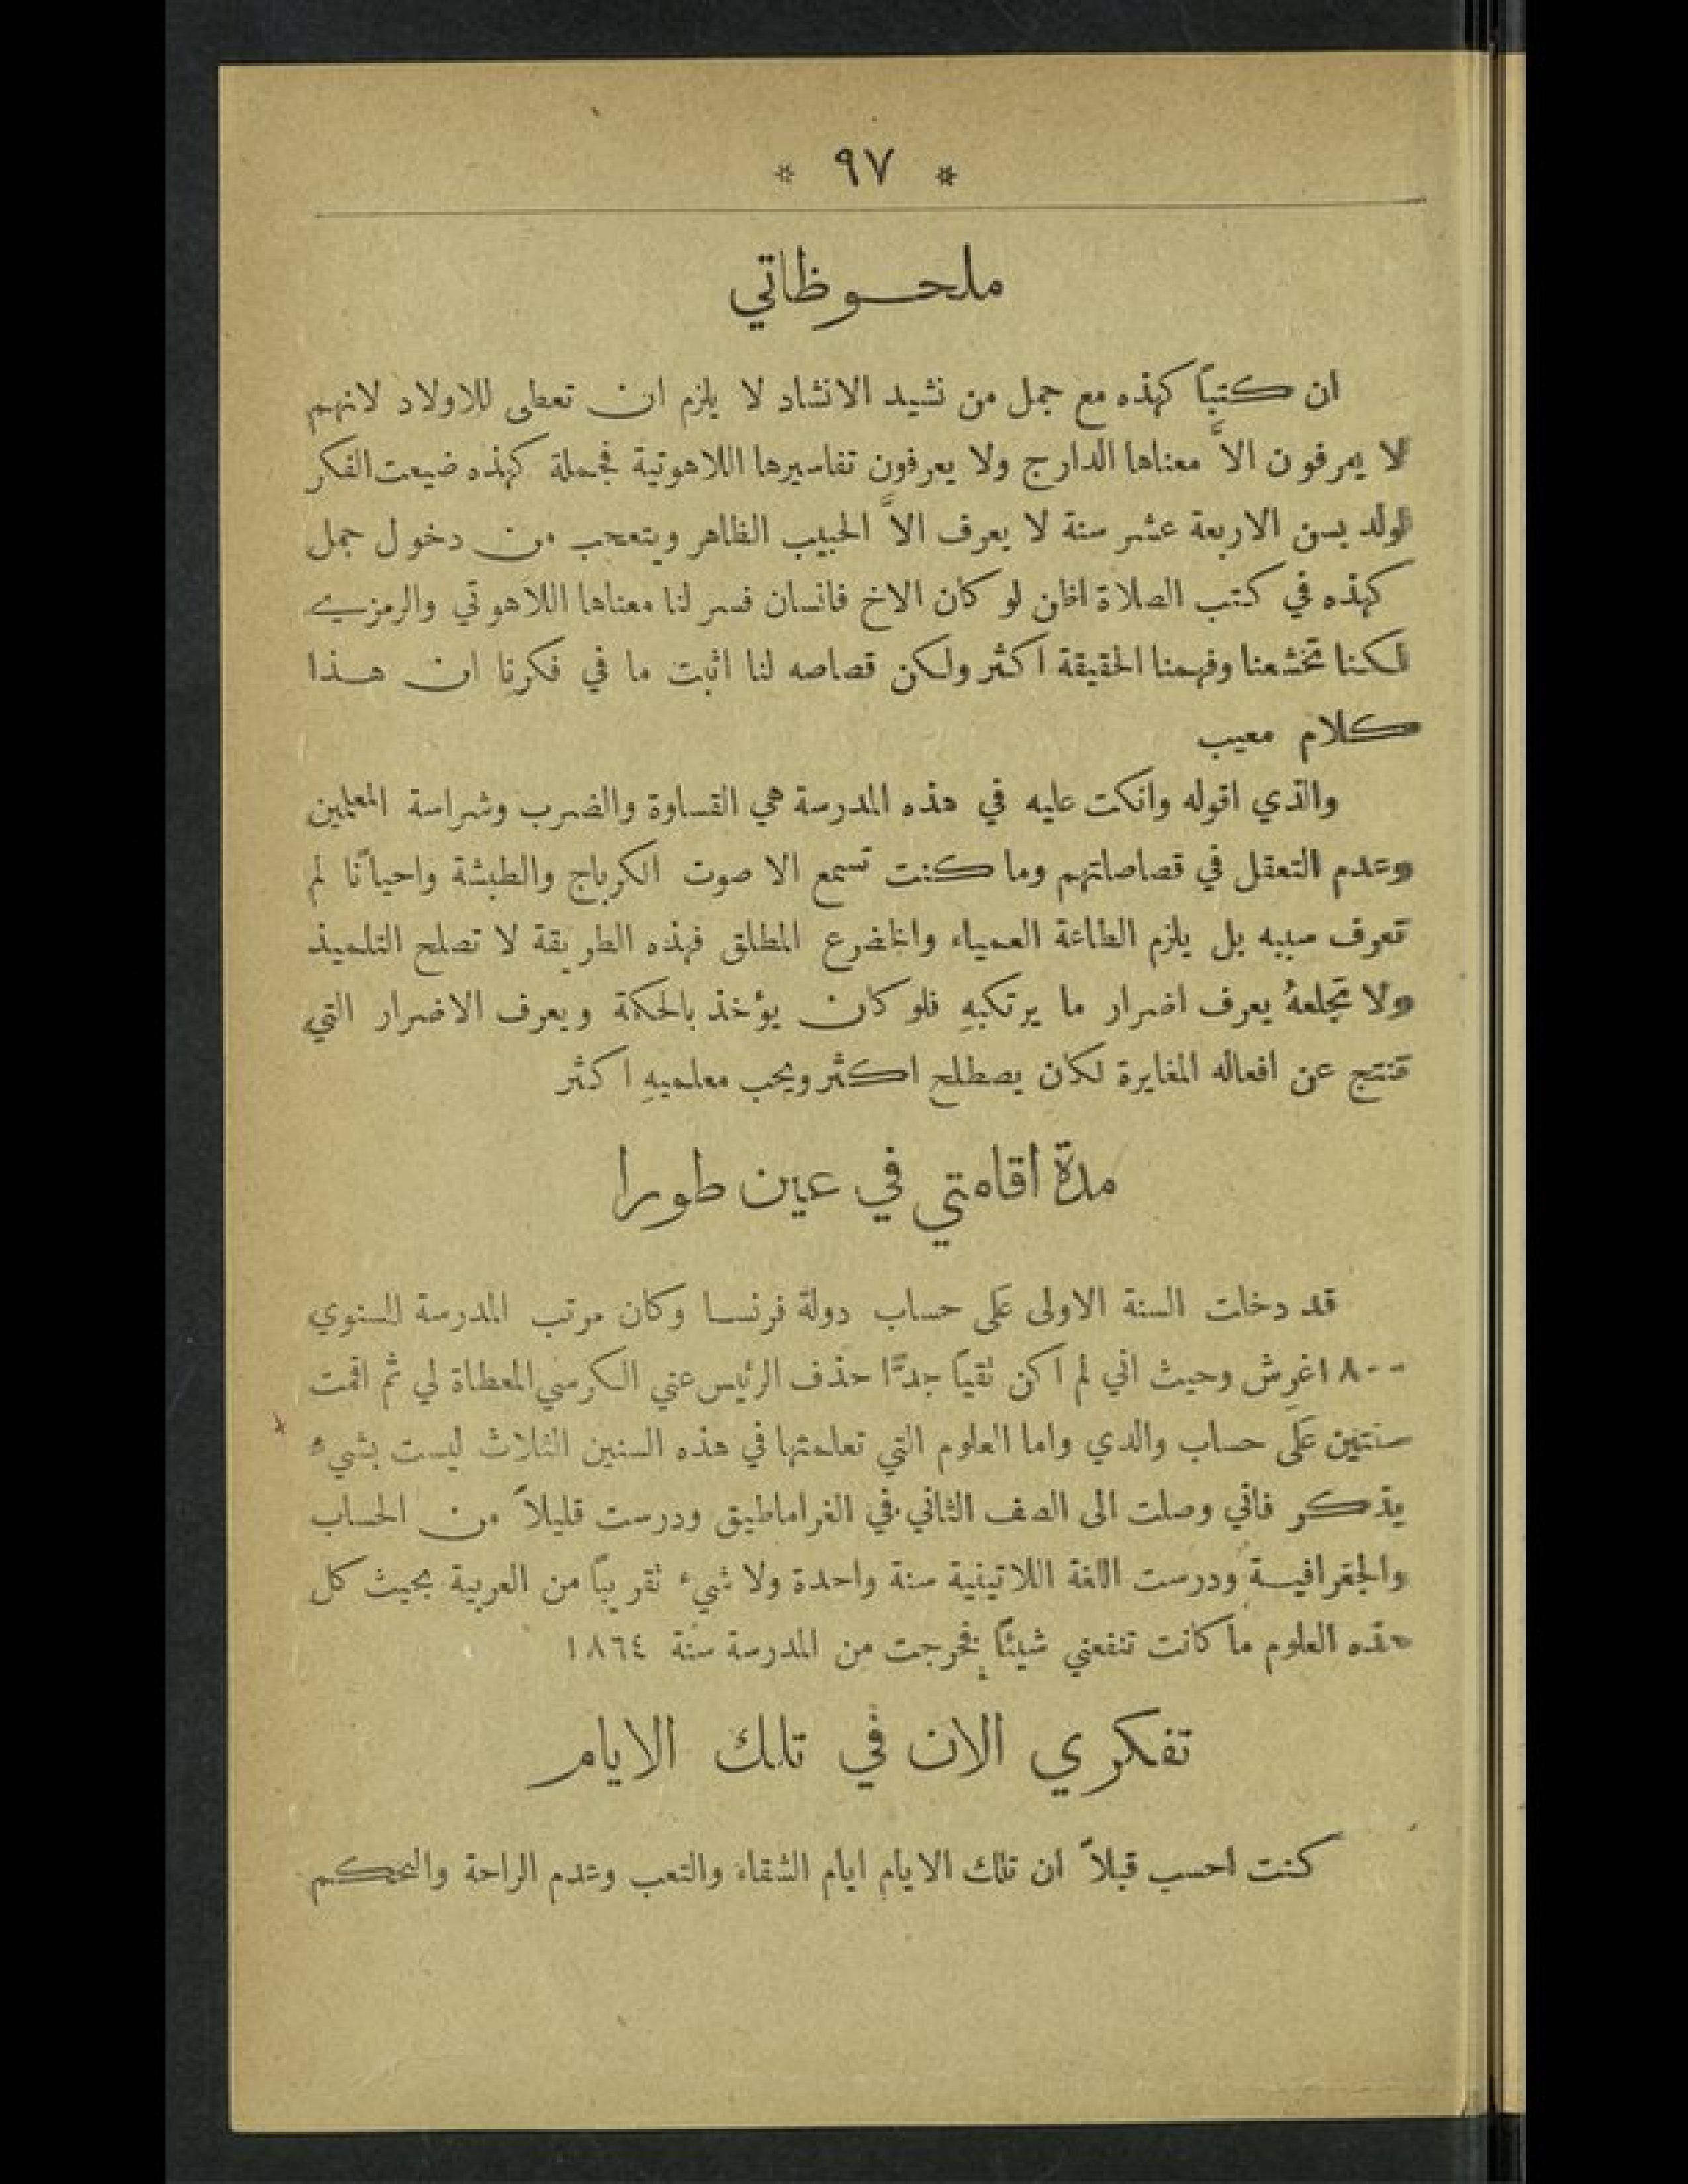 * ٩٧ *
ملحوظاتي
ان كتباً كهذه مع جمل من نشيد الانشاد لا يلزم ان تعطى للاولاد لانهم
لا يعرفون الاَّ معناها الدارج ولا يعرفون تفاسيرها اللاهوتية فجملة كهذه ضيعت الفكر
لولد بسن الاربعة عشر سنة لا يعرف الاَّ الحبيب الظاهر ويتعجب من دخول جمل
كهذه في كتب الصلاة اظن لو كان الاخ فانسان فسر لنا معناها اللاهوتي والرمزي
لكنا تخشعنا وفهمنا الحقيقة اكثر ولكن قصاصه لنا اثبت ما في فكرنا ان هذا
كلام معيب
والذي اقوله وانكت عليه في هذه المدرسة هي القساوة والضرب وشراسة المعلمين
وعدم التعقل في قصاصاتهم وما كنت تسمع الا صوت الكرباج والطبشة واحياناً لم
تعرف سببه بل يلزم الطاعة العمياء والخضوع المطلق فهذه الطريقة لا تصلح التلميذ
ولا تجلعهُ يعرف اضرار ما يرتكبهِ فلو كان يؤخذ بالحكمة ويعرف الاضرار التي
تنتج عن افعاله المغايرة لكان يصطلح اكثر ويحب معلميهِ اكثر
مدة اقامتي في عين طورا
قد دخلت السنة الاولى على حساب دولة فرنسا وكان مرتب المدرسة السنوي
١٨٠٠ غرش وحيث اني لم اكن تقياً جدًّا حذف الرئيس عني الكرسي المعطاة لي ثم اقمت
سنتين على حساب والدي واما العلوم التي تعلمتها في هذه السنين الثلاث ليست بشيء
يذكر فاني وصلت الى الصف الثاني في الغراماطيق ودرست قليلاً من الحساب
والجغرافية ودرست اللغة اللاتينية سنة واحدة ولا شيء تقريباً من العربية بحيث كل
هذه العلوم ما كانت تنفعني شيئاً فخرجت من المدرسة سنة ١٨٦٤
تفكري الان في تلك الايام
كنت احسب قبلاً ان تلك الايام ايام الشقاء والتعب وعدم الراحة والتحكم